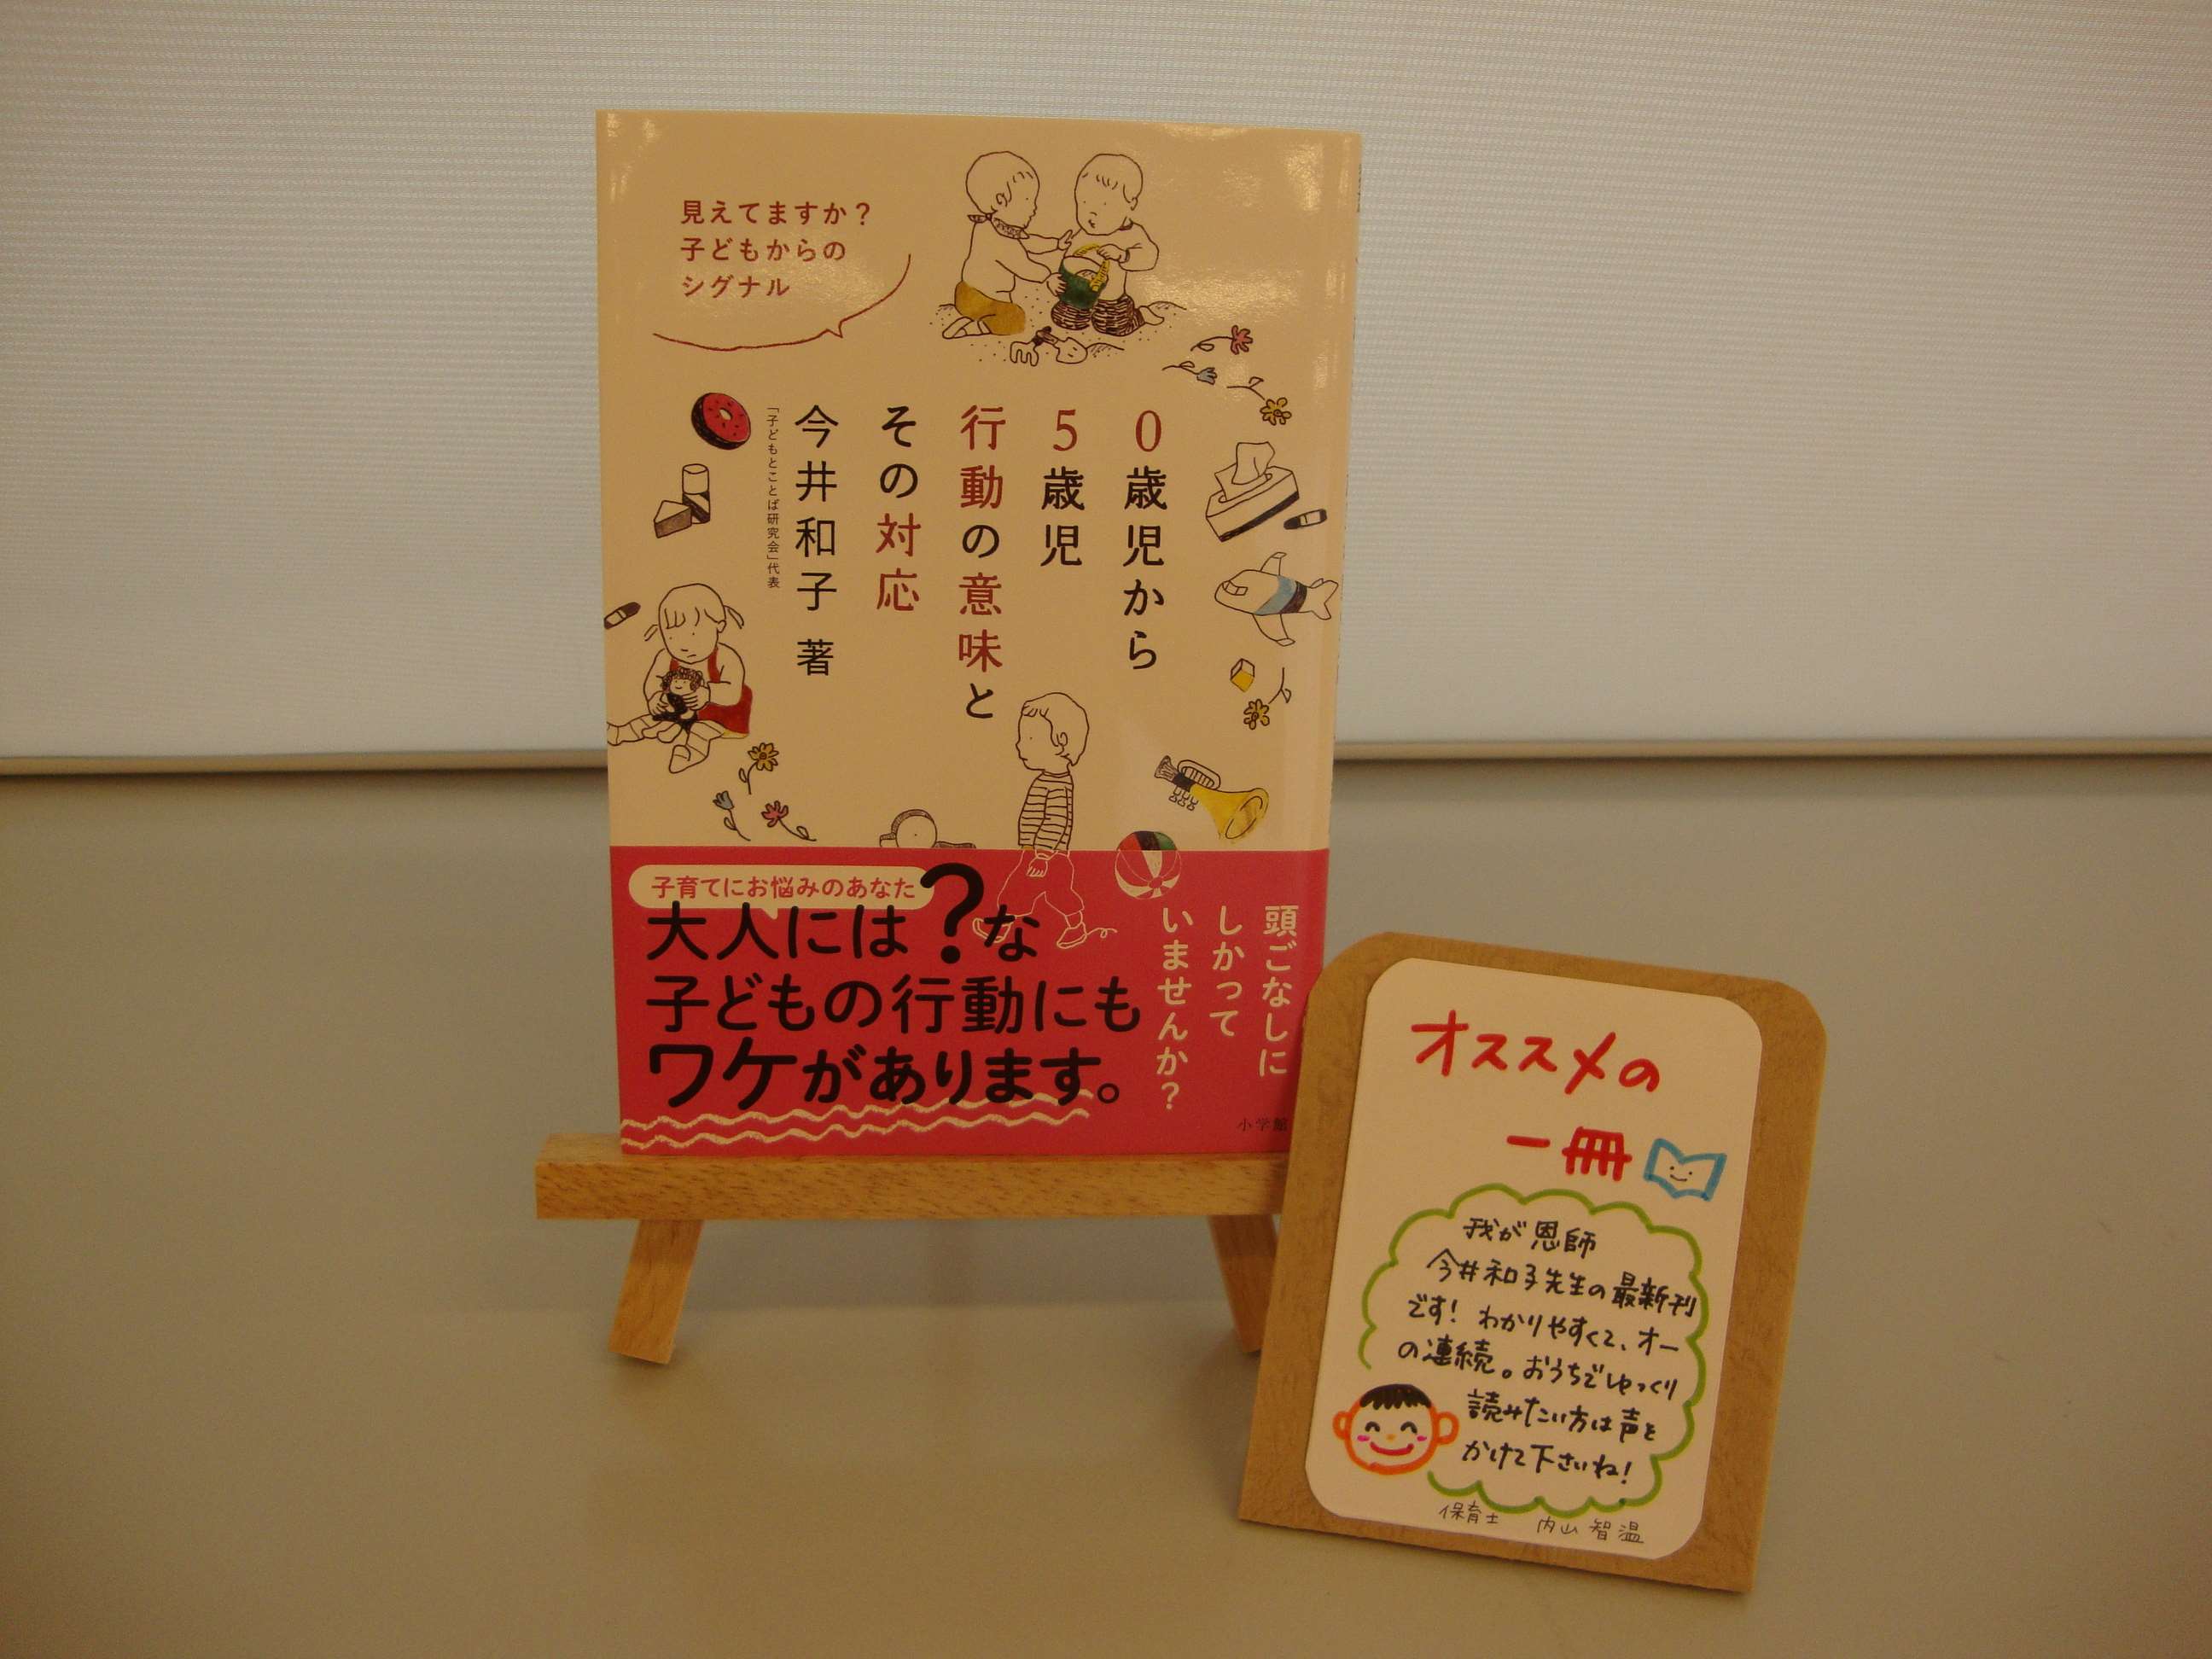 見えてますか？
子どもからの
シグナル
0歳児から
5歳児
行動の意味と
その対応
今井和子 著
「子どもとことば研究会」代表
子育てにお悩みのあなた
大人には？な
子どもの行動にも
ワケがあります。
頭ごなしに
しかって
いませんか？
小学館
オススメの
一冊
我が恩師
今井和子先生の最新刊
です！わかりやすくて、オー
の連続。おうちでゆっくり
読みたい方は声を
かけて下さいね！
保育士 内山 智温